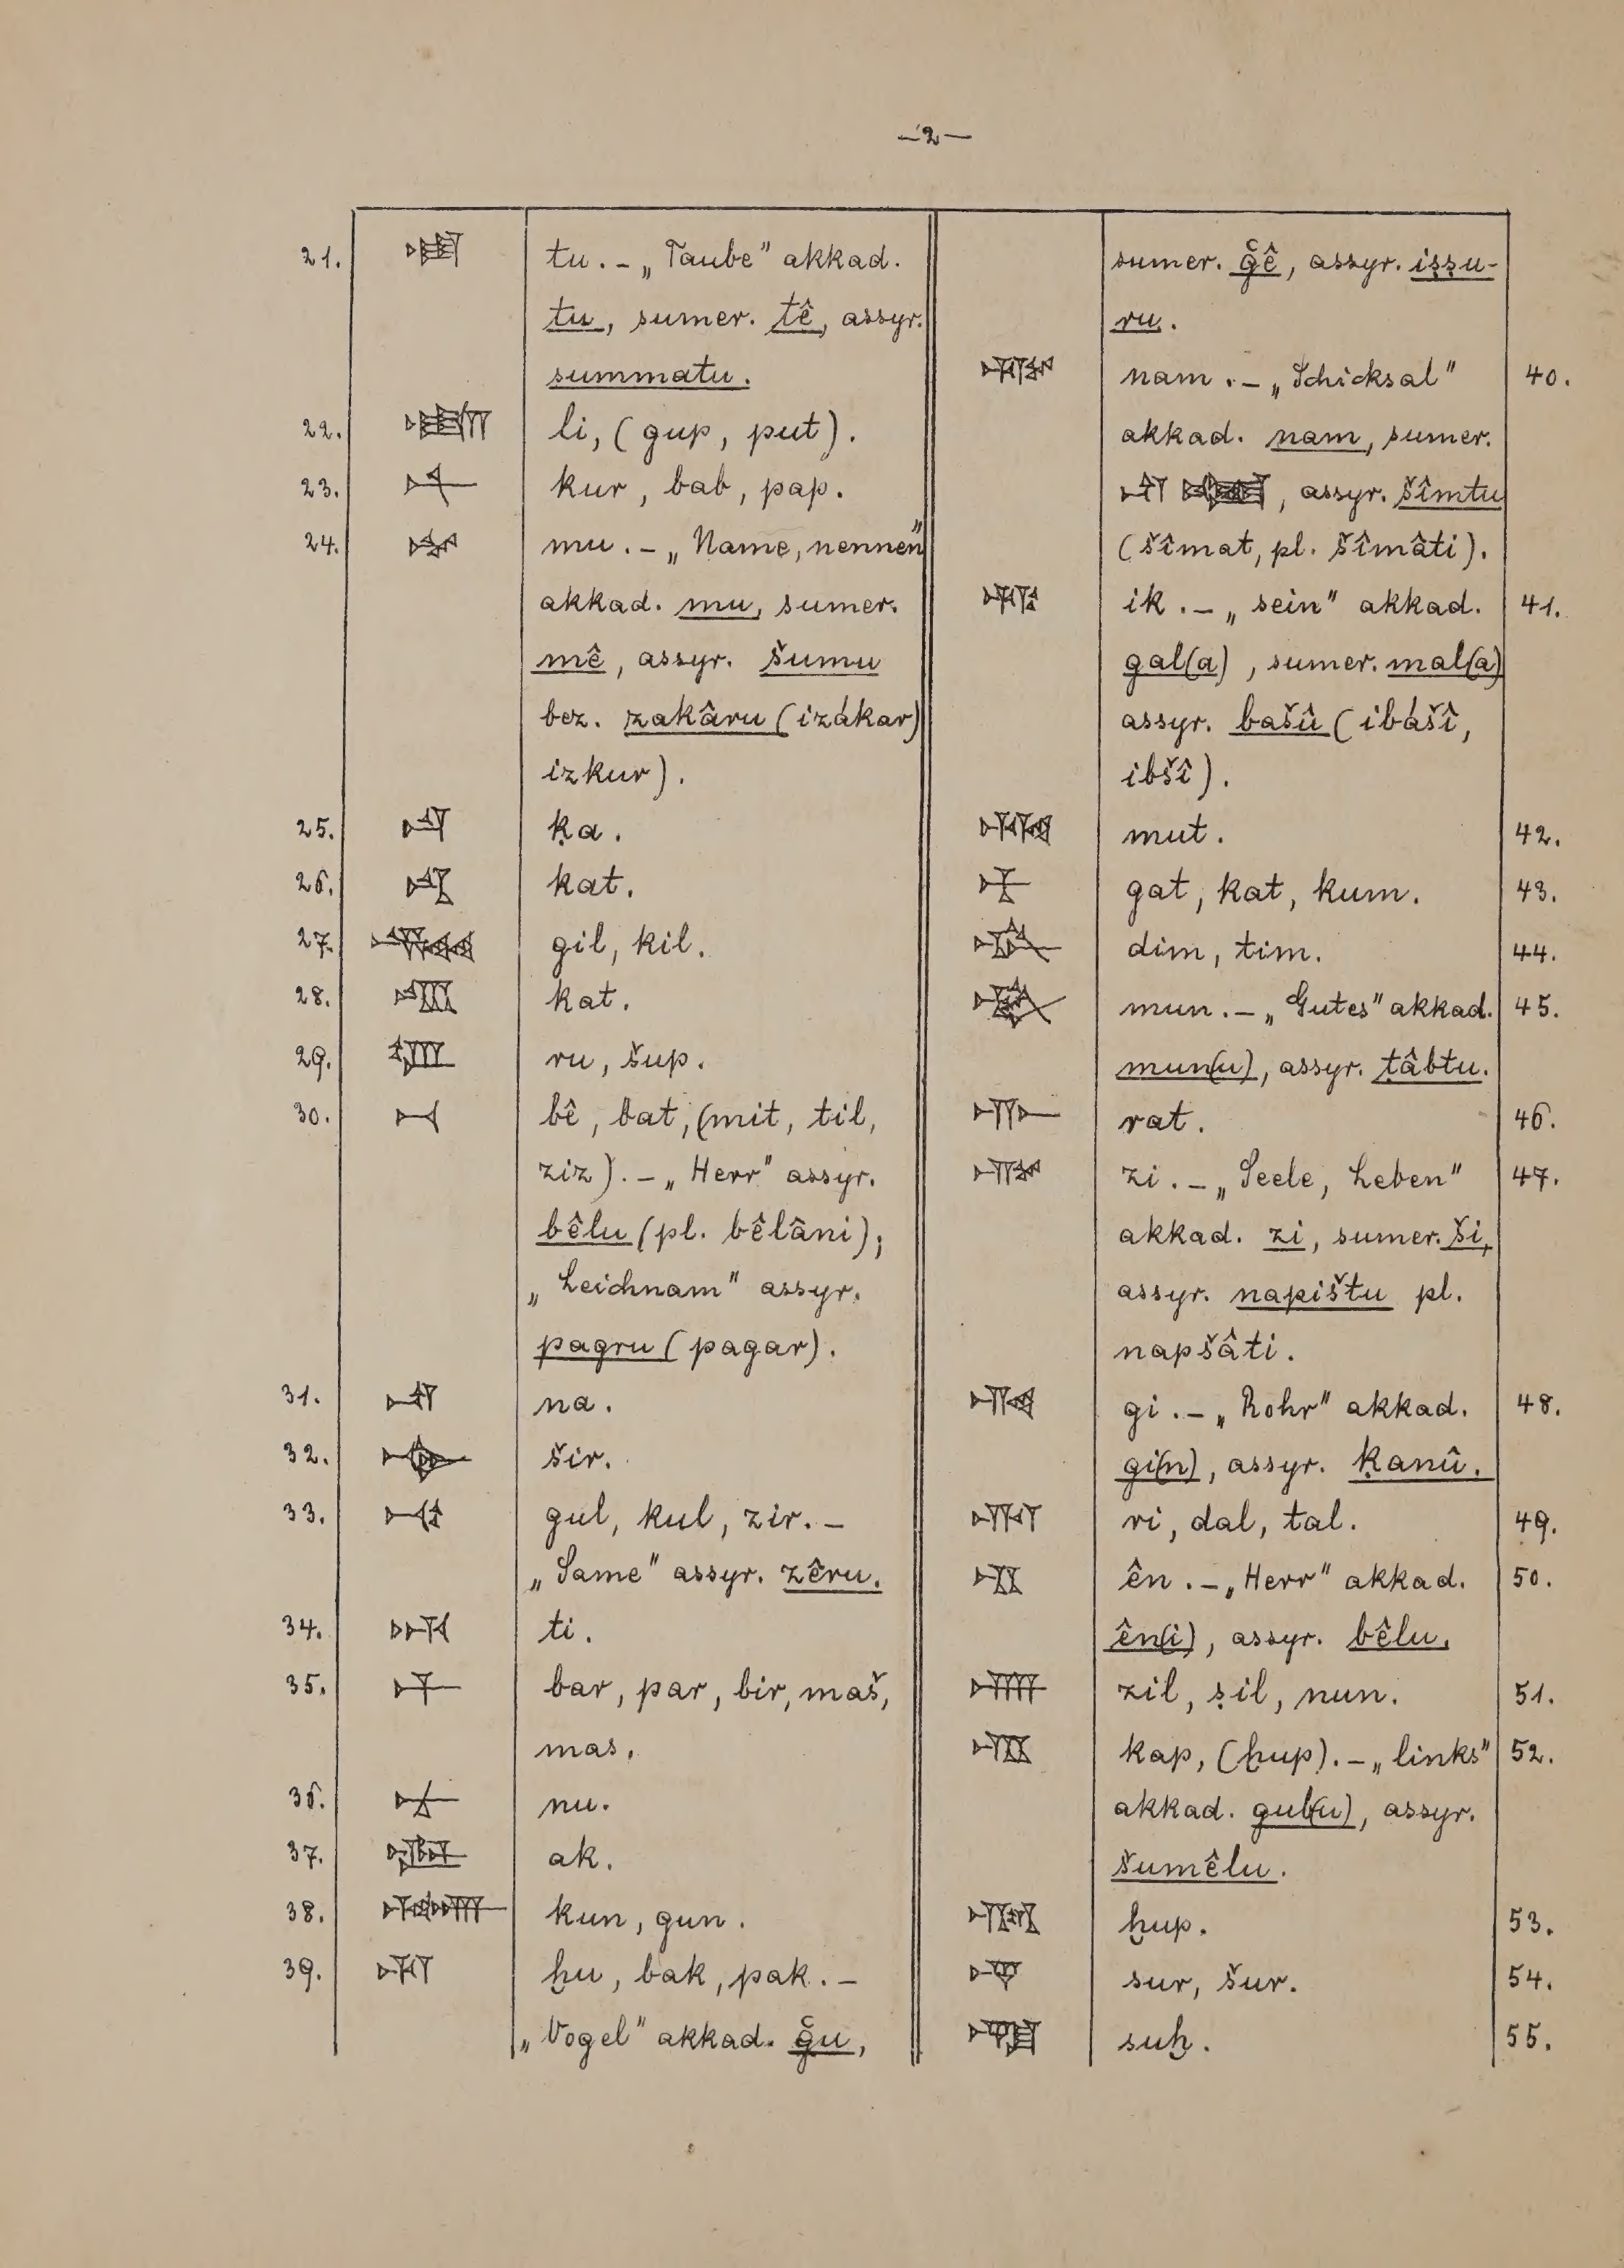 —2—
21. 𒌅 tu. – „Taube" akkad.
tu, sumer. tê, assyr.
summatu.
22. 𒇷 li, (gup, put).
23. 𒉽 kur, bab, pap.
24. 𒈬 mu. – „Name, nennen"
akkad. mu, sumer.
mê, assyr. šumu
bez. zakâru (izákar)
izkur).
25. 𒋡 ḳa.
26. kat.
27. 𒄃 gil, kil.
28. kat.
29. 𒊒 ru, šup.
30. 𒁁 bê, bat, (mit, til,
ziz). – „Herr" assyr.
bêlu (pl. bêlâni);
„Leichnam" assyr.
pagru (pagar).
31. 𒈾 na.
32. šir.
33. 𒆰 gul, kul, zir. –
„Same" assyr. zêru.
34. 𒋾 ti.
35. 𒁇 bar, par, bir, maš,
mas.
36. 𒉡 nu.
37. 𒀝 ak.
38. 𒆲 kun, gun.
39. 𒄷 ḫu, bak, pak. –
„Vogel" akkad. g̃u,
sumer. g̃ê, assyr. iṣṣu-
ru.
𒉆 nam. – „Schicksal" 40.
akkad. nam, sumer.
𒈾 , assyr. šîmtu
(šîmat, pl. šîmâti).
𒅅 ik. – „sein" akkad. 41.
gal(a), sumer. mal(a)
assyr. bašû (ibášî,
ibšî).
𒄷𒄭 mut. 42.
gat, kat, kum. 43.
𒁴 dim, tim. 44.
𒁶 mun. – „Gutes" akkad. 45.
mun(u), assyr. ṭâbtu.
rat. 46.
𒍣 zi. – „Seele, Leben" 47.
akkad. zi, sumer. ši,
assyr. napištu pl.
napšâti.
𒄀 gi. – „Rohr" akkad. 48.
gi(n), assyr. ḳanû.
𒊑 ri, dal, tal. 49.
𒂗 ên. – „Herr" akkad. 50.
ên(i), assyr. bêlu.
𒉣 zil, ṣil, nun. 51.
kap, (ḫup). – „links" 52.
akkad. gub(u), assyr.
šumêlu.
ḫup. 53.
𒋩 sur, šur. 54.
𒈽 suḫ. 55.